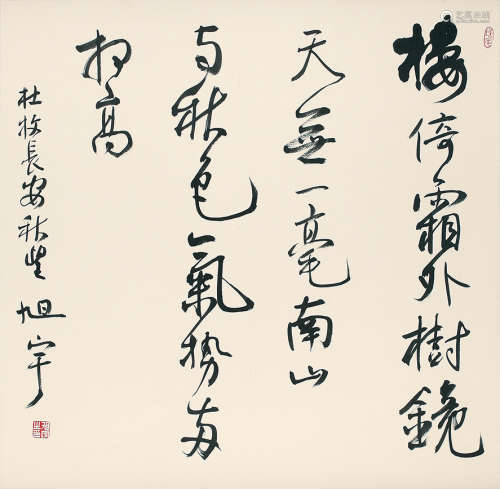 樓倚霜外樹鏡
天無一毫南山
与秋色氣势兩
相高
杜牧長安秋望 旭宇